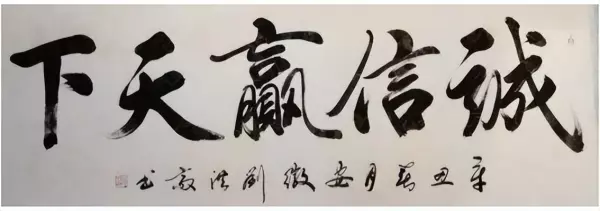 诚信赢天下
辛丑菊月安徽刘洪彦书